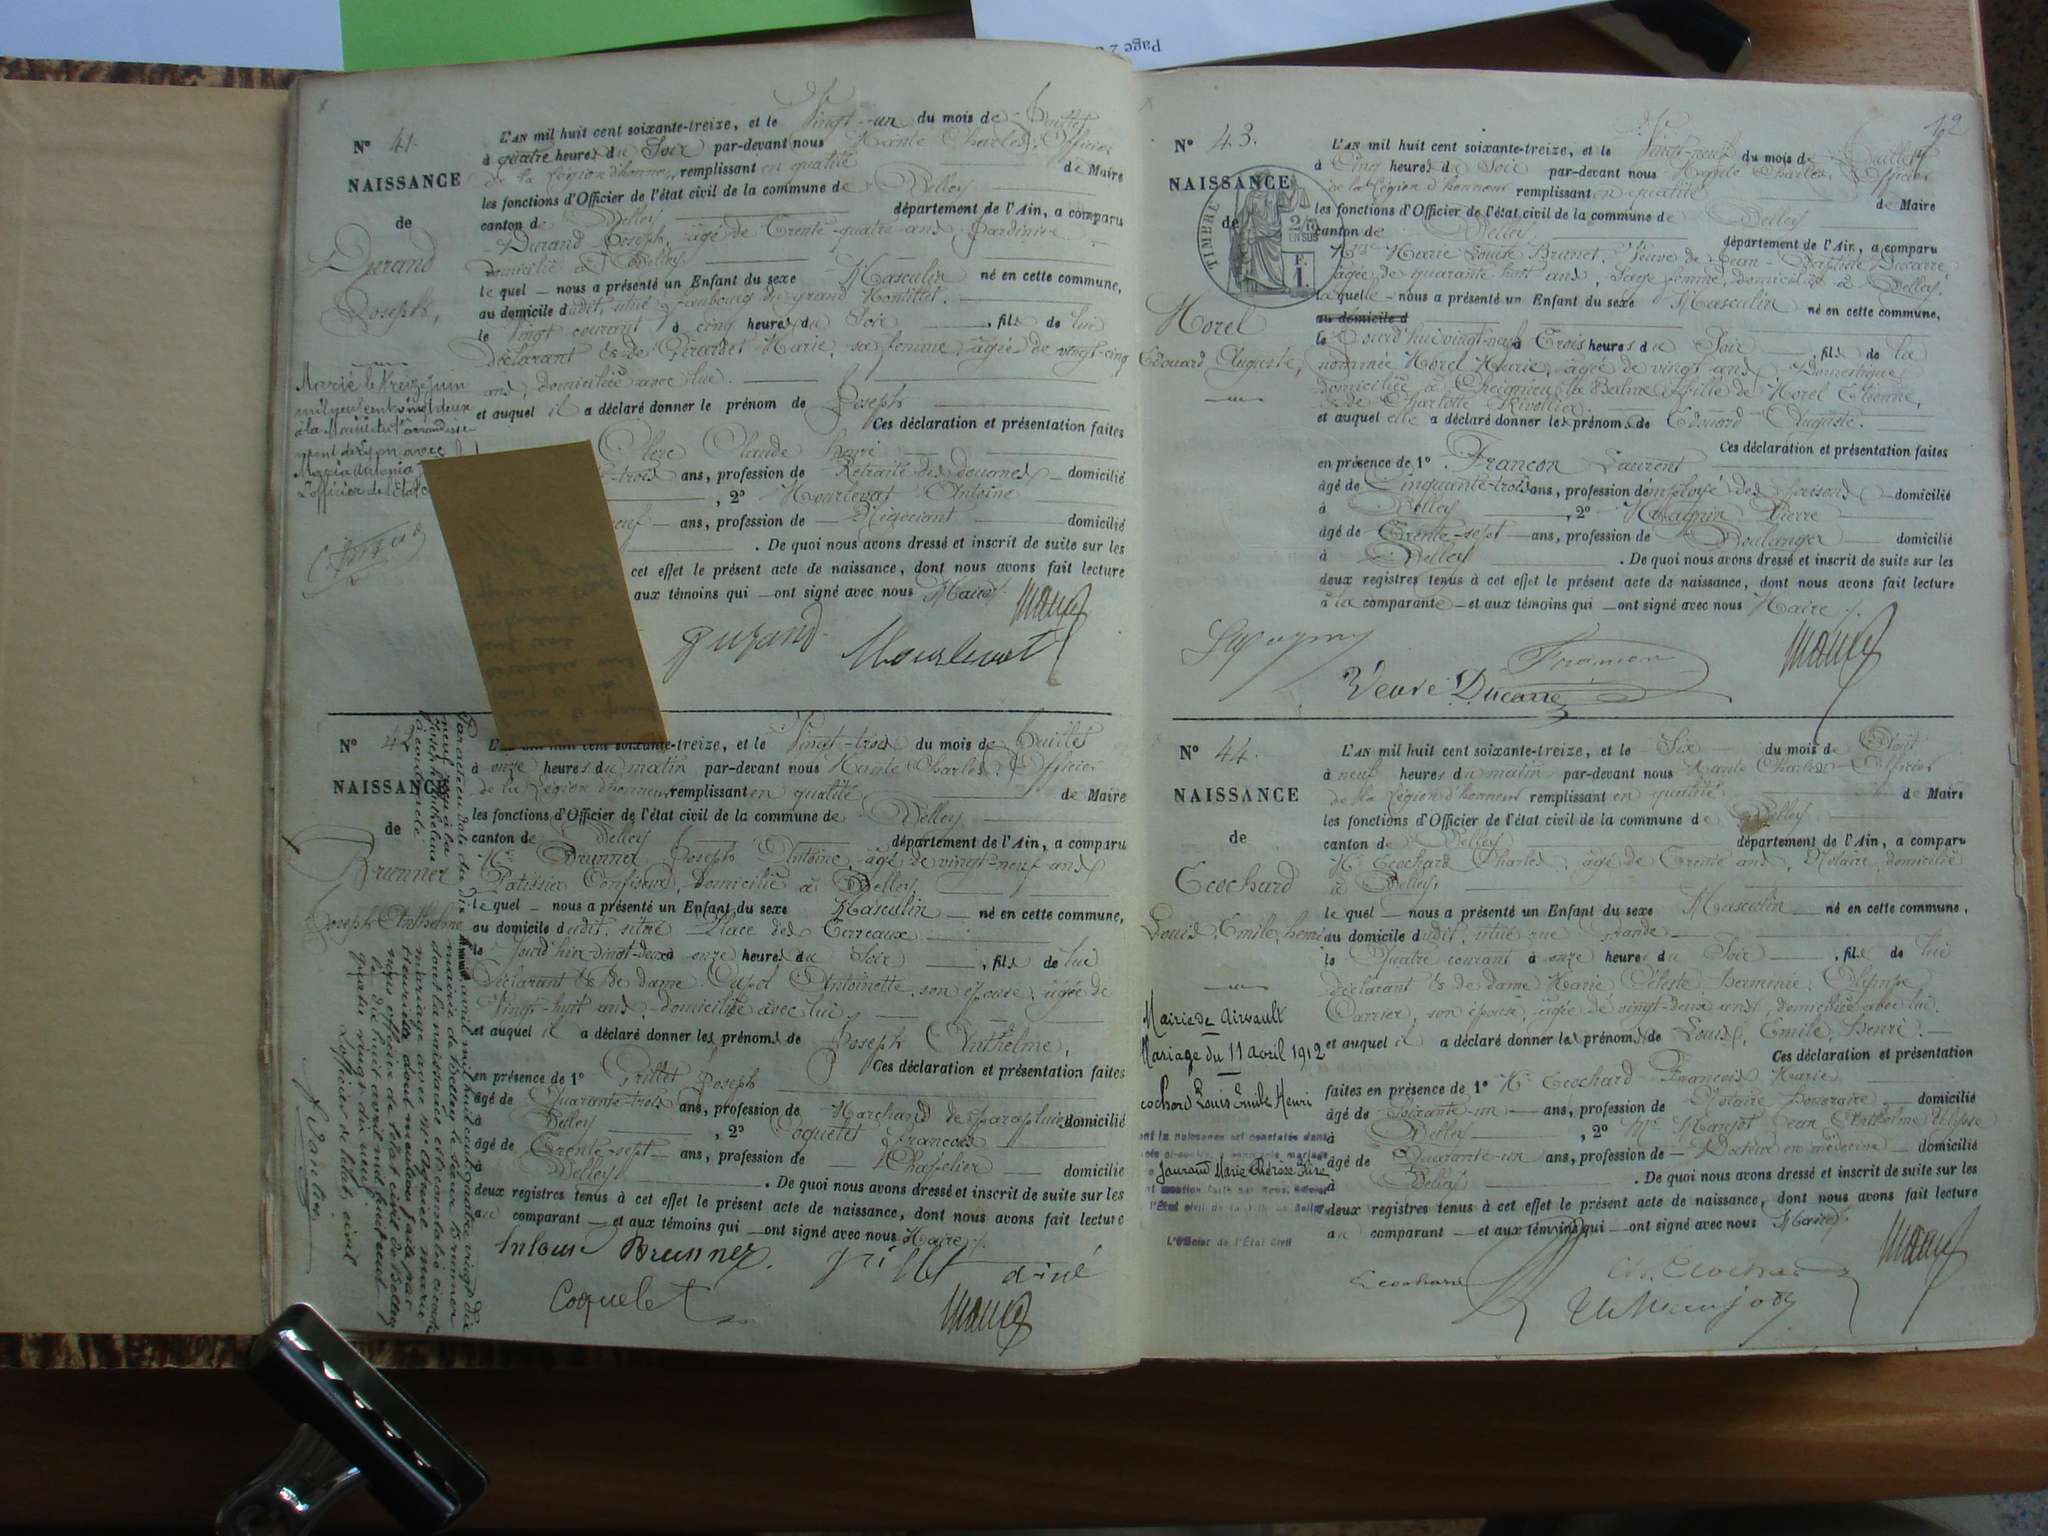 Page 2
N° 41.
NAISSANCE
de
Durand
Joseph,
Marié le treize juin
mil neuf cent vingt deux
à la Mairie du arrondisse
ment de Lyon avec
Maria Antonia
L'officier de l'état c
L'AN mil huit cent soixante-treize, et le Vingt-un du mois de Juillet
à quatre heures du Soir par-devant nous Mante Charles, Officier
de la Légion d'honneur, remplissant en qualité de Maire
les fonctions d'Officier de l'état civil de la commune de Belley
canton de Belley département de l'Ain, a comparu
Durand Joseph, âgé de Trente-quatre ans Jardinier
domicilié à Belley
le quel nous a présenté un Enfant du sexe Masculin né en cette commune,
au domicile dudit, situé faubourg du grand
le Vingt courant à cinq heures du Soir, fils de lui
Déclarant & de Girardet Marie, sa femme, âgée de vingt-cinq
ans, domiciliée avec lui.
et auquel il a déclaré donner le prénom de Joseph
Ces déclaration et présentation faites
Clerc Claude Henri
-trois ans, profession de Retraité des douanes domicilié
, 2° Mourlevat Antoine
neuf ans, profession de Négociant domicilié
. De quoi nous avons dressé et inscrit de suite sur les
cet effet le présent acte de naissance, dont nous avons fait lecture
aux témoins qui ont signé avec nous Maire.
Durand Mourlevat Mante
N° 42
NAISSANCE
de
Brunner
Joseph Anthelme
L'AN mil huit cent soixante-treize, et le Vingt-trois du mois de Juillet
à onze heures du matin par-devant nous Mante Charles, Officier
de la Légion d'honneur remplissant en qualité de Maire
les fonctions d'Officier de l'état civil de la commune de Belley
canton de Belley département de l'Ain, a comparu
Mr Brunner Joseph Antoine, âgé de vingt-neuf ans
Patissier Confiseur, domicilié à Belley,
le quel nous a présenté un Enfant du sexe Masculin né en cette commune,
au domicile dudit, situé Place des Terreaux
le vingt-deux à onze heures du Soir, fils de lui
Déclarant & de dame Antoinette, son épouse, âgée de
Vingt-huit ans domiciliée avec lui,
et auquel il a déclaré donner les prénoms de Joseph Anthelme,
Ces déclaration et présentation faites
en présence de 1° Grillet Joseph
âgé de Quarante-trois ans, profession de Marchand de parapluies domicilié
à Belley, 2° Coquelet François
âgé de Trente-sept ans, profession de Chapelier domicilié
à Belley. De quoi nous avons dressé et inscrit de suite sur les
deux registres tenus à cet effet le présent acte de naissance, dont nous avons fait lecture
au comparant et aux témoins qui ont signé avec nous Maire.
Antoine Brunner. Grillet aîné
Coquelet Mante
Par acte en date de dix
neuf reçu à la
avril mil huit cent quatre vingt dix
mairie de Belley le sieur Brunner
Joseph Anthelme
dont la naissance est constatée ci contre
a contracté
mariage avec Melle Marie
dont mention faite par
nous officier de l'état civil de Belley
L'officier de l'état civil
12
N° 43.
NAISSANCE
de
TIMBRE
2/10
EN SUS
F.
1.
Morel
Edouard Auguste,
L'AN mil huit cent soixante-treize, et le Vingt-neuf du mois de Juillet
à Cinq heures du Soir par-devant nous Mante Charles, Officier
de la Légion d'honneur remplissant en qualité de Maire
les fonctions d'Officier de l'état civil de la commune de Belley
canton de Belley département de l'Ain, a comparu
Marie Louise Brunet, Veuve de Jean-Baptiste Ducarre,
âgée de quarante huit ans, Sage femme, domiciliée à Belley,
la quelle nous a présenté un Enfant du sexe Masculin né en cette commune,
au domicile d
le Jourd'hui vingt-neuf à Trois heures du Soir, fils de la
nommée Morel Marie, âgée de vingt ans Domestique
domiciliée à Cheignieu la Balme, fille de Morel Etienne,
& de Charlotte Rivollier.
et auquel elle a déclaré donner les prénoms de Edouard Auguste.
Ces déclaration et présentation faites
en présence de 1° Françon Laurent
âgé de Cinquante-trois ans, profession d'employé des prisons domicilié
à Belley, 2° Pierre
âgé de Trente-sept ans, profession de Boulanger domicilié
à Belley. De quoi nous avons dressé et inscrit de suite sur les
deux registres tenus à cet effet le présent acte de naissance, dont nous avons fait lecture
à la comparante et aux témoins qui ont signé avec nous Maire.
Françon Mante
Veuve Ducarre
N° 44.
NAISSANCE
de
Ecochard
Louis, Emile, henri
Mairie de Airvault
Mariage du 11 Avril 1912
Ecochard Louis Emile Henri
dont la naissance est constatée dans
Jaurand Marie Thérèse
L'Officier de l'État Civil
L'AN mil huit cent soixante-treize, et le Six du mois de Août
à neuf heures du matin par-devant nous Mante Charles Officier
de la Légion d'honneur remplissant en qualité de Maire
les fonctions d'Officier de l'état civil de la commune de Belley
canton de Belley département de l'Ain, a comparu
Mr Ecochard Charles, âgé de Trente ans, Notaire, domicilié
à Belley,
le quel nous a présenté un Enfant du sexe Masculin né en cette commune,
au domicile dudit, situé rue grande
le Quatre courant à onze heures du Soir, fils de lui
déclarant & de dame Marie Céleste Herminie Olympe
Carrier, son épouse, âgée de vingt-deux ans, domiciliée avec lui.
et auquel il a déclaré donner les prénoms de Louis, Emile, Henri.
Ces déclaration et présentation
faites en présence de 1° Mr Ecochard François Marie
âgé de Soixante-un ans, profession de Notaire honoraire domicilié
à Belley, 2° Mr Jean Anthelme Ulysse
âgé de Quarante-un ans, profession de Docteur en médecine domicilié
à Belley. De quoi nous avons dressé et inscrit de suite sur les
deux registres tenus à cet effet le présent acte de naissance, dont nous avons fait lecture
au comparant et aux témoins qui ont signé avec nous Maire.
Ecochard Ch. Ecochard Mante